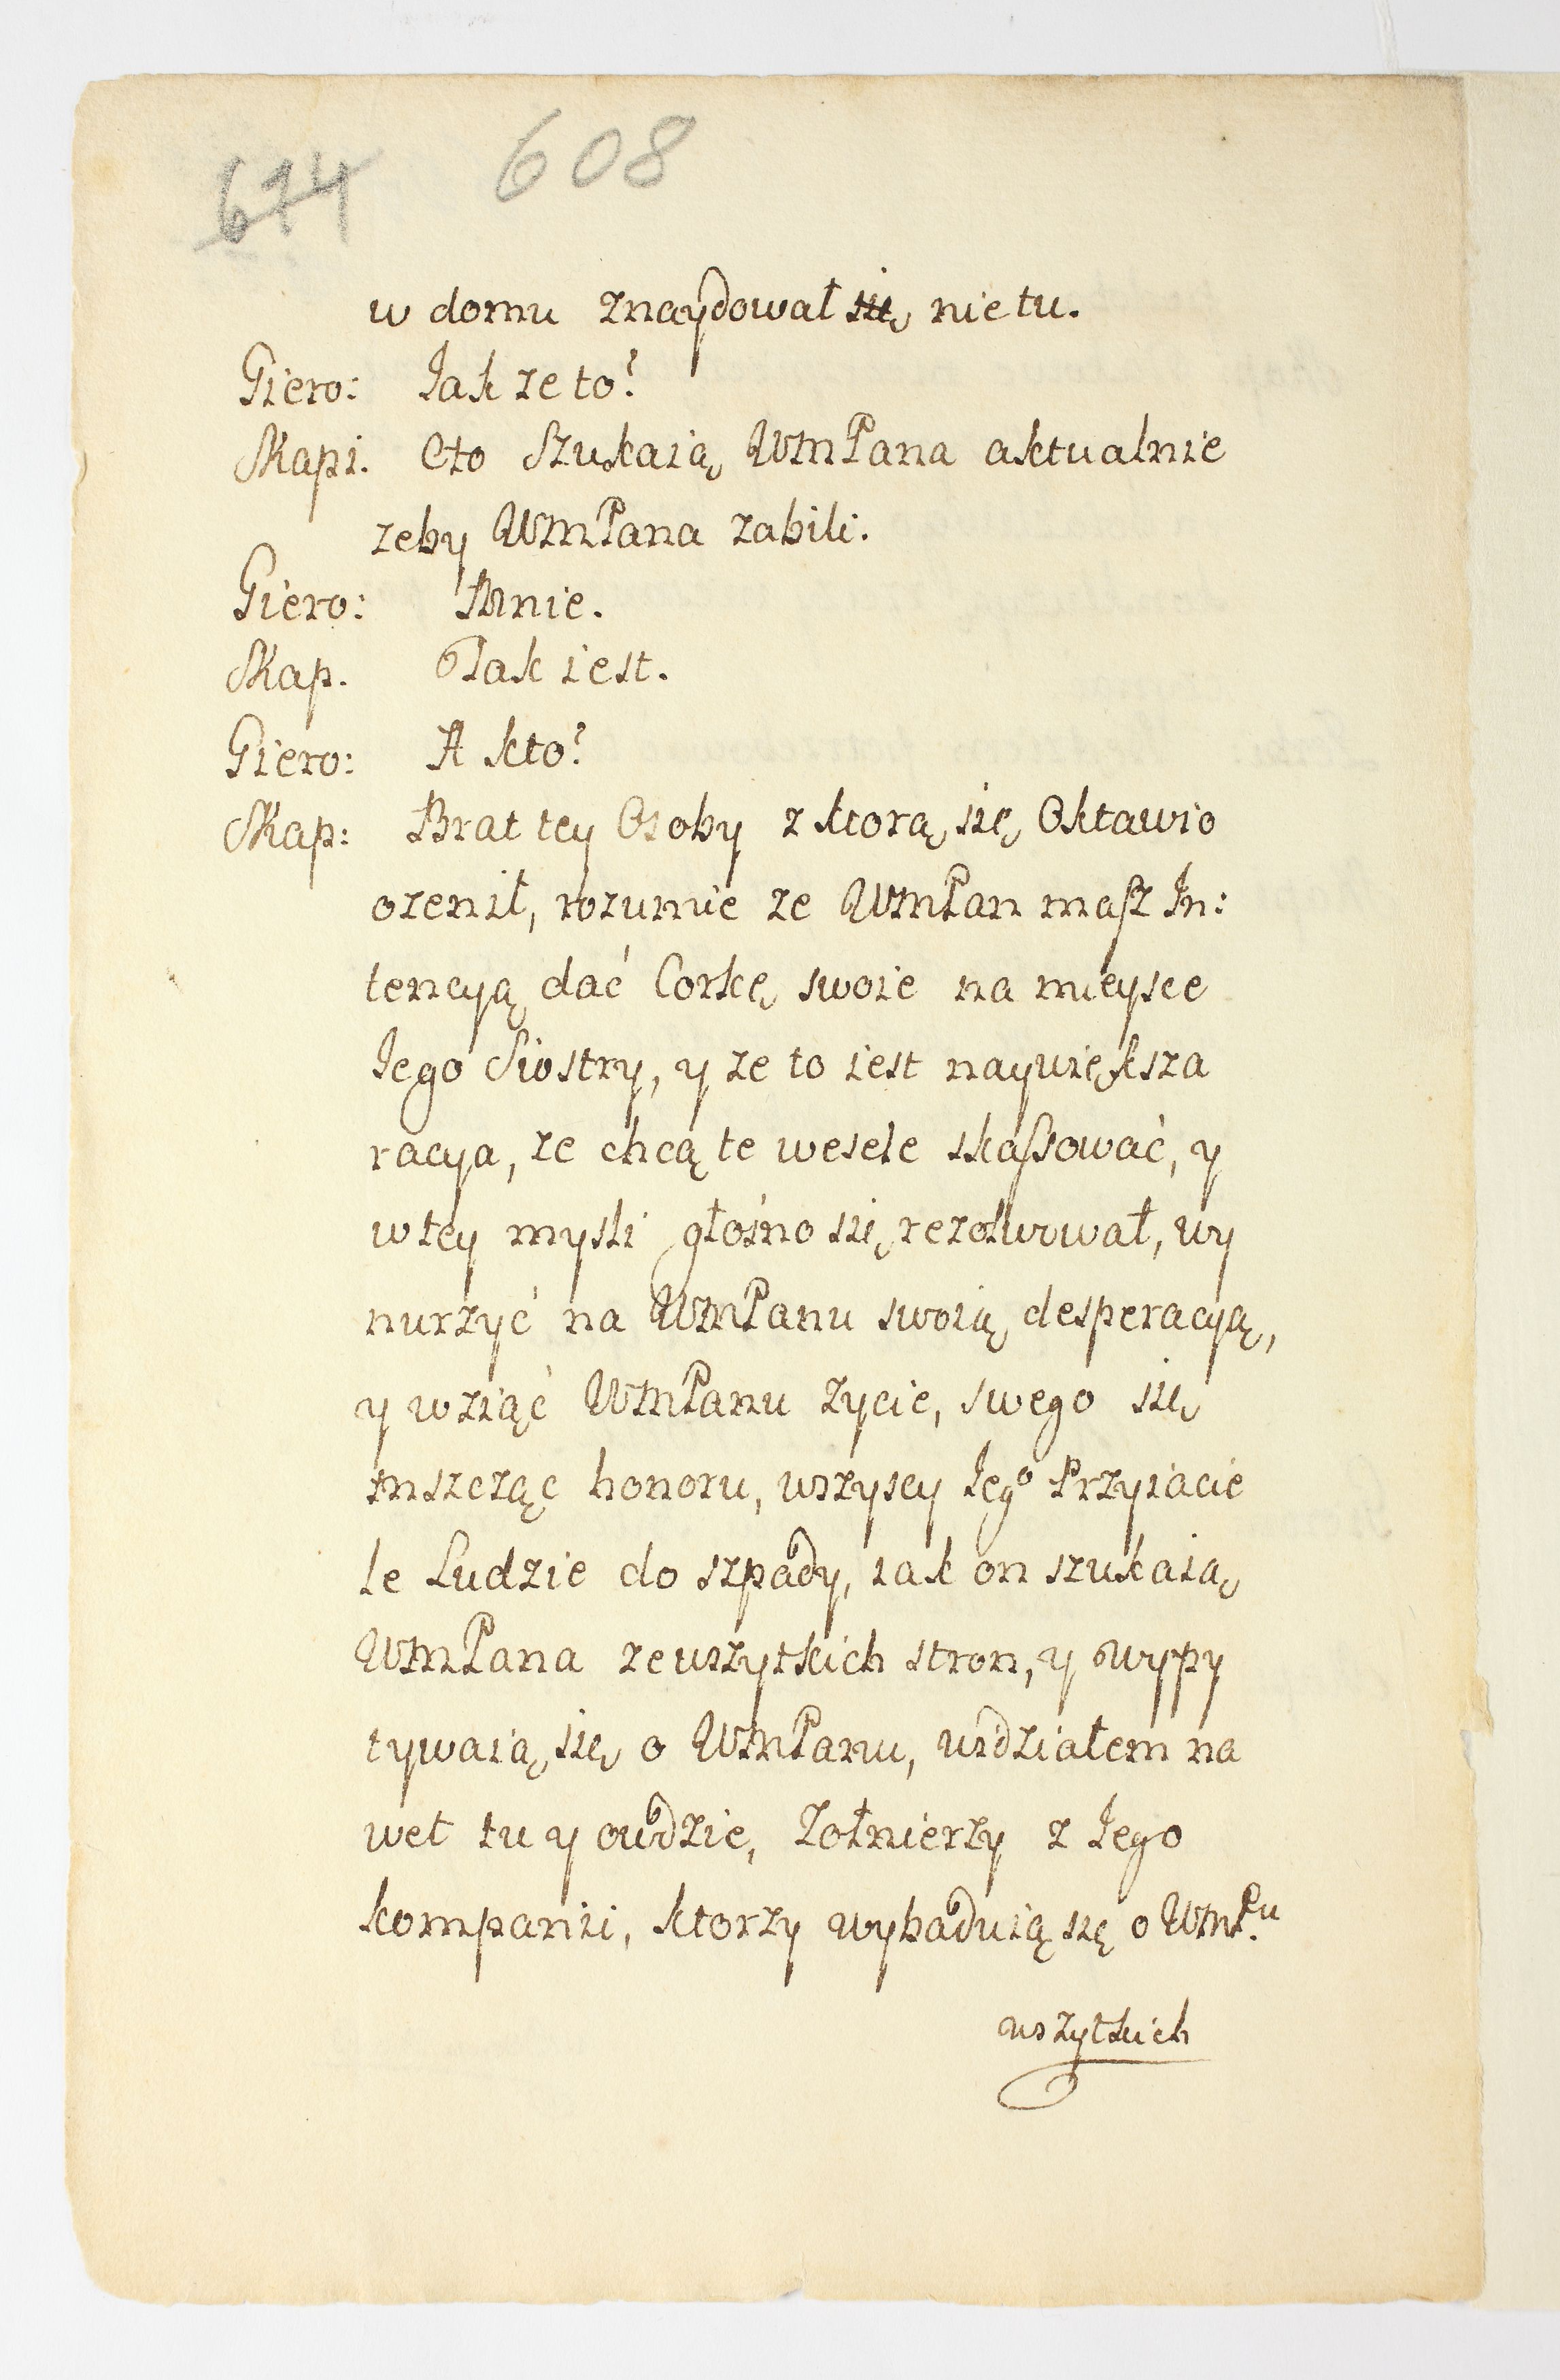 674 608
w domu znaydował się, nie tu.
Giero: Jak ze to?
Skapi. Oto Szukaią WmPana aktualnie
zeby WmPana zabili.
Giero: Mnie.
Skap. Tak iest.
Giero: A kto?
Skap: Brat tey Osoby z ktorą się Oktawio
ozenił, rozumie ze WmPan masz In:
tencyą dać Corkę swoie na mieysce
Jego Siostry, y ze to iest naywiększa
racya, ze chcą te wesele skassować, y
w tey mysli głośno się rezolwował, wy
nurzyć na WmPanu swoią desperacyą,
y wziąć WmPanu zycie, swego się
mszcząc honoru, wszyscy Jegº Przyiacie
le Ludzie do szpady, iak on szukaią
WmPana ze wszytkich stron, y wypy
tywaią się o WmPanu, widziałem na
wet tu y owdzie, Zołnierzy z Jego
kompanii, ktorzy wybaduią się o WmP.u
wszytkich